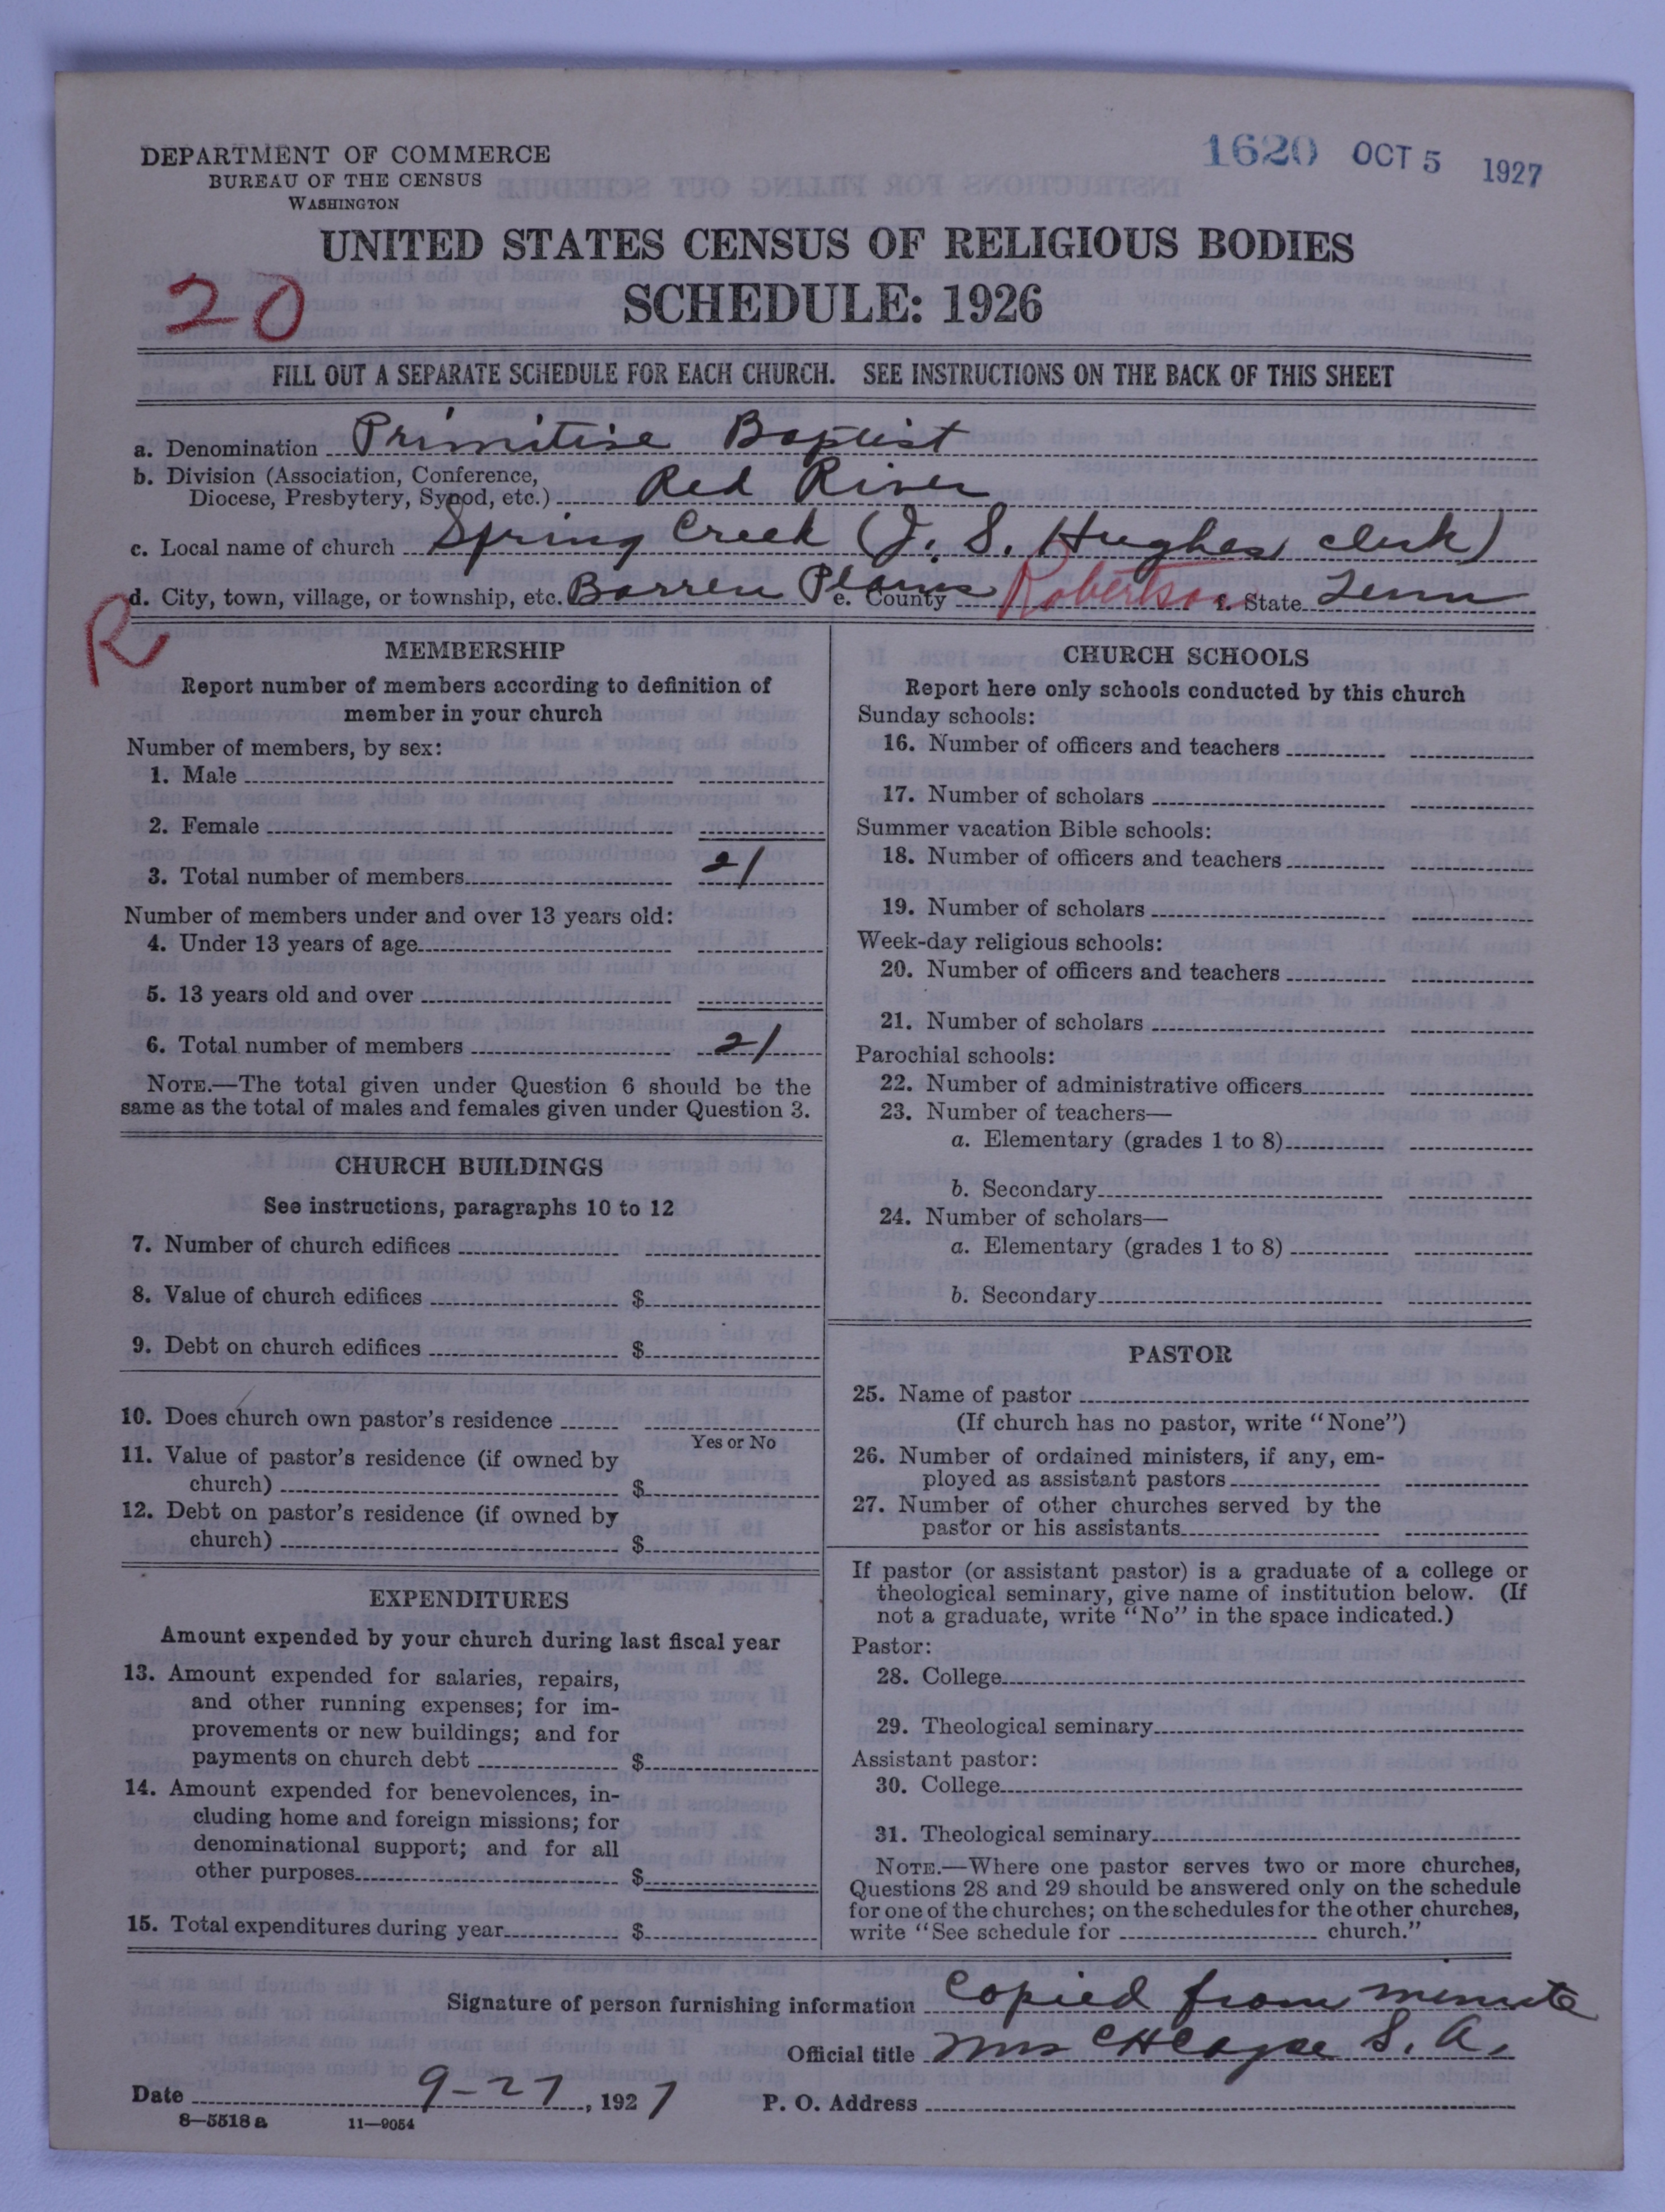 1620 OCT 5 1927
DEPARTMENT OF COMMERCE
BUREAU OF THE CENSUS
WASHINGTON
UNITED STATES CENSUS OF RELIGIOUS BODIES
20
SCHEDULE: 1926
FILL OUT A SEPARATE SCHEDULE FOR EACH CHURCH. SEE INSTRUCTIONS ON THE BACK OF THIS SHEET
a. Denomination Primitive Baptist
b. Division (Association, Conference,
Diocese, Presbytery, Synod, etc.) Red River
c. Local name of church Spring Creek (J. S. Hughes clerk)
d. City, town, village, or township, etc. Barren Plains e. County Robertson f. State Tenn
R
MEMBERSHIP
Report number of members according to definition of
member in your church
Number of members, by sex:
1. Male
2. Female
3. Total number of members 21
Number of members under and over 13 years old:
4. Under 13 years of age
5. 13 years old and over
6. Total number of members 21
NOTE.—The total given under Question 6 should be the
same as the total of males and females given under Question 3.
CHURCH BUILDINGS
See instructions, paragraphs 10 to 12
7. Number of church edifices
8. Value of church edifices $
9. Debt on church edifices $
10. Does church own pastor's residence
Yes or No
11. Value of pastor's residence (if owned by
church) $
12. Debt on pastor's residence (if owned by
church) $
EXPENDITURES
Amount expended by your church during last fiscal year
13. Amount expended for salaries, repairs,
and other running expenses; for im-
provements or new buildings; and for
payments on church debt $
14. Amount expended for benevolences, in-
cluding home and foreign missions; for
denominational support; and for all
other purposes $
15. Total expenditures during year $
CHURCH SCHOOLS
Report here only schools conducted by this church
Sunday schools:
16. Number of officers and teachers
17. Number of scholars
Summer vacation Bible schools:
18. Number of officers and teachers
19. Number of scholars
Week-day religious schools:
20. Number of officers and teachers
21. Number of scholars
Parochial schools:
22. Number of administrative officers
23. Number of teachers—
a. Elementary (grades 1 to 8)
b. Secondary
24. Number of scholars—
a. Elementary (grades 1 to 8)
b. Secondary
PASTOR
25. Name of pastor
(If church has no pastor, write "None")
26. Number of ordained ministers, if any, em-
ployed as assistant pastors
27. Number of other churches served by the
pastor or his assistants
If pastor (or assistant pastor) is a graduate of a college or
theological seminary, give name of institution below. (If
not a graduate, write "No" in the space indicated.)
Pastor:
28. College
29. Theological seminary
Assistant pastor:
30. College
31. Theological seminary
NOTE.—Where one pastor serves two or more churches,
Questions 28 and 29 should be answered only on the schedule
for one of the churches; on the schedules for the other churches,
write "See schedule for church."
Signature of person furnishing information Copied from minute
Official title Mrs C H Cayce S. A.
Date 9-27, 1927 P. O. Address
8-5518a 11-9054